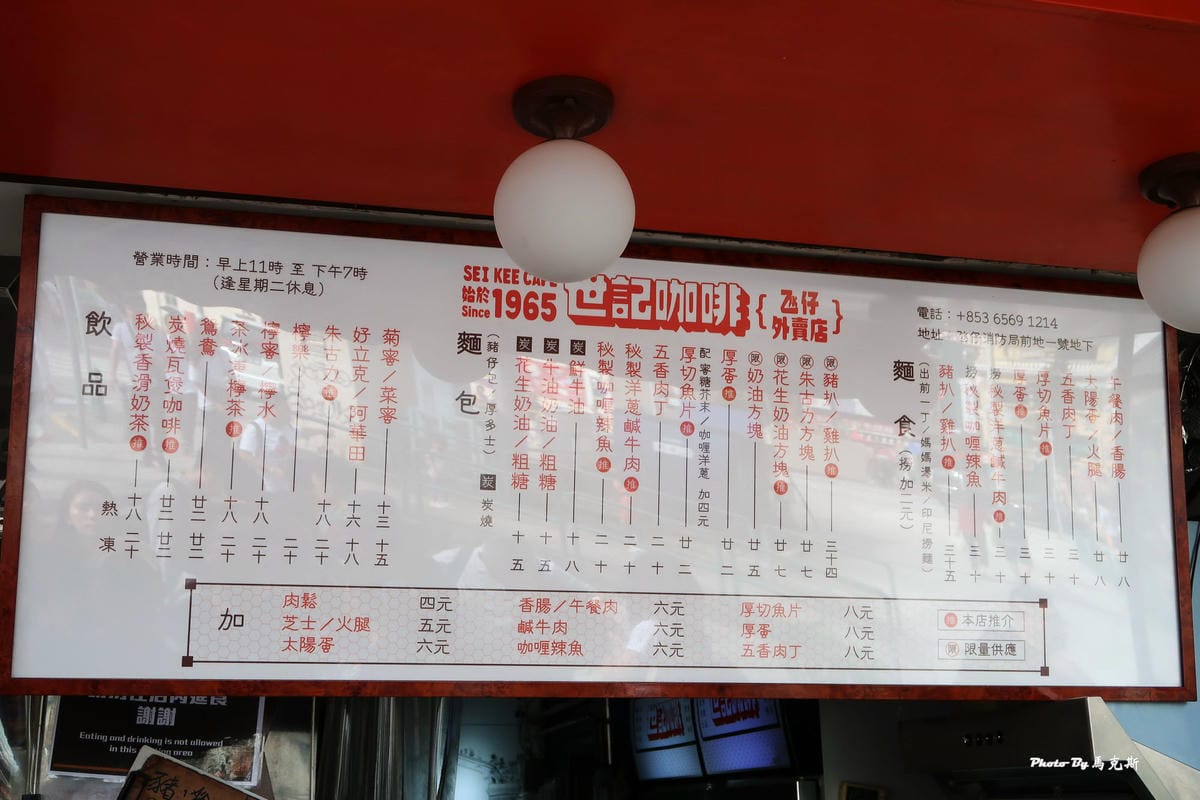 營業時間：早上11時 至 下午7時
（逢星期二休息）
SEI KEE CAFE
始於
Since 1965
世記咖啡
{ 氹仔
外賣店 }
電話：+853 6569 1214
飲品
秘製香滑奶茶 推 十八 二十
炭燒瓦煲咖啡 推 廿二 廿二
鴛鴦 廿二 廿二
茶水／凍檸茶 推 十八 二十
檸蜜／檸水 十八 二十
檸樂 二十
朱古力 推 十八 二十
好立克／阿華田 十六 十八
菊蜜／菜蜜 十三 十五
熱
凍
麵包
（豬仔包／厚多士）
炭 炭燒
炭 花生奶油／粗糖 十五
炭 牛油奶油／粗糖 十五
炭 鮮牛油 十八
秘製咖喱辣魚 推 二十
秘製洋蔥鹹牛肉 推 二十
五香肉丁 二十
厚切魚片 推 廿二
配蜜糖芥末／咖喱洋蔥 加四元
厚蛋 推 廿二
限 奶油方塊 廿五
限 花生奶油方塊 推 廿七
限 朱古力方塊 廿七
限 豬扒／雞扒 推 三十四
麵食（撈加二元）
豬扒／雞扒 推 三十五
撈秘製咖喱辣魚 三十
撈秘製洋蔥鹹牛肉 推 三十
厚蛋 推 三十
厚切魚片 推 三十
五香肉丁 三十
太陽蛋／火腿 廿八
午餐肉／香腸 廿八
加
肉鬆 四元
芝士／火腿 五元
太陽蛋 六元
香腸／午餐肉 六元
鹹牛肉 六元
咖喱辣魚 六元
厚切魚片 八元
厚蛋 八元
五香肉丁 八元
推 本店推介
限 限量供應
謝謝
Eating and drinking is not allowed
in this
area
世記咖啡
Photo By 馬克斯